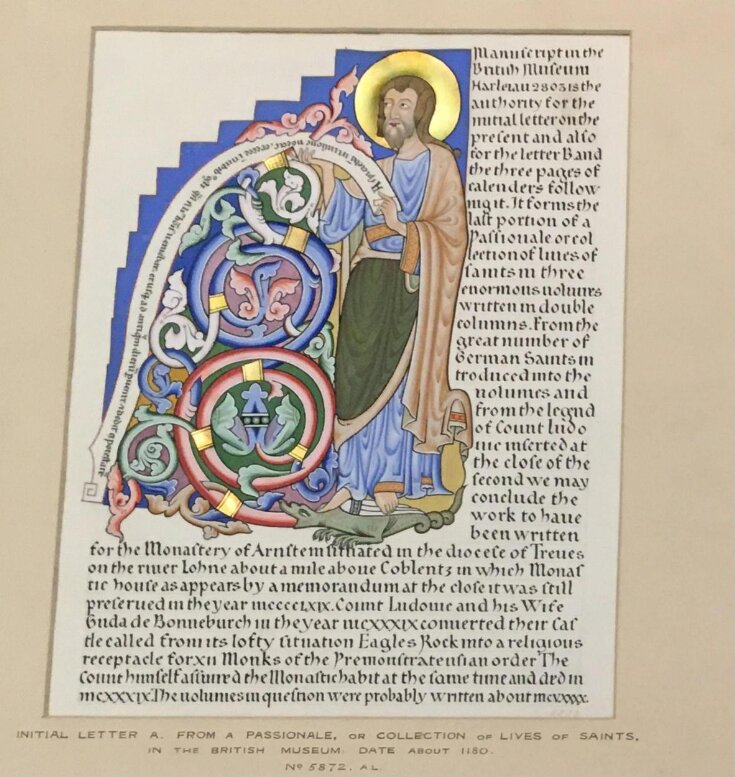 Manuscript in the
British Museum
Harleian 2803 is the
authority for the
initial letter on the
present and also
for the letter B and
the three pages of
calenders follow
ing it. It forms the
last portion of a
Passionale or col
lection of lives of
saints in three
enormous volumes
written in double
columns. From the
great number of
German Saints in
troduced into the
volumes and
from the legend
of Count Ludo
vic inserted at
the close of the
second we may
conclude the
work to have
been written
for the Monastery of Arnstein situated in the diocese of Treves
on the river Lohne about a mile above Coblentz in which Monas
tic house as appears by a memorandum at the close it was still
preserved in the year mccccLXIX. Count Ludovic and his Wife
Guda de Bonneburch in the year mcxxxix converted their Cas
tle called from its lofty situation Eagles Rock into a religious
receptacle for xii Monks of the Premonstratensian order The
Count himself assumed the Monastic habit at the same time and died in
mcxxxix The volumes in question were probably written about mcxxxx.
INITIAL LETTER A. FROM A PASSIONALE, OR COLLECTION OF LIVES OF SAINTS,
IN THE BRITISH MUSEUM. DATE ABOUT 1180.
No 5872. AL